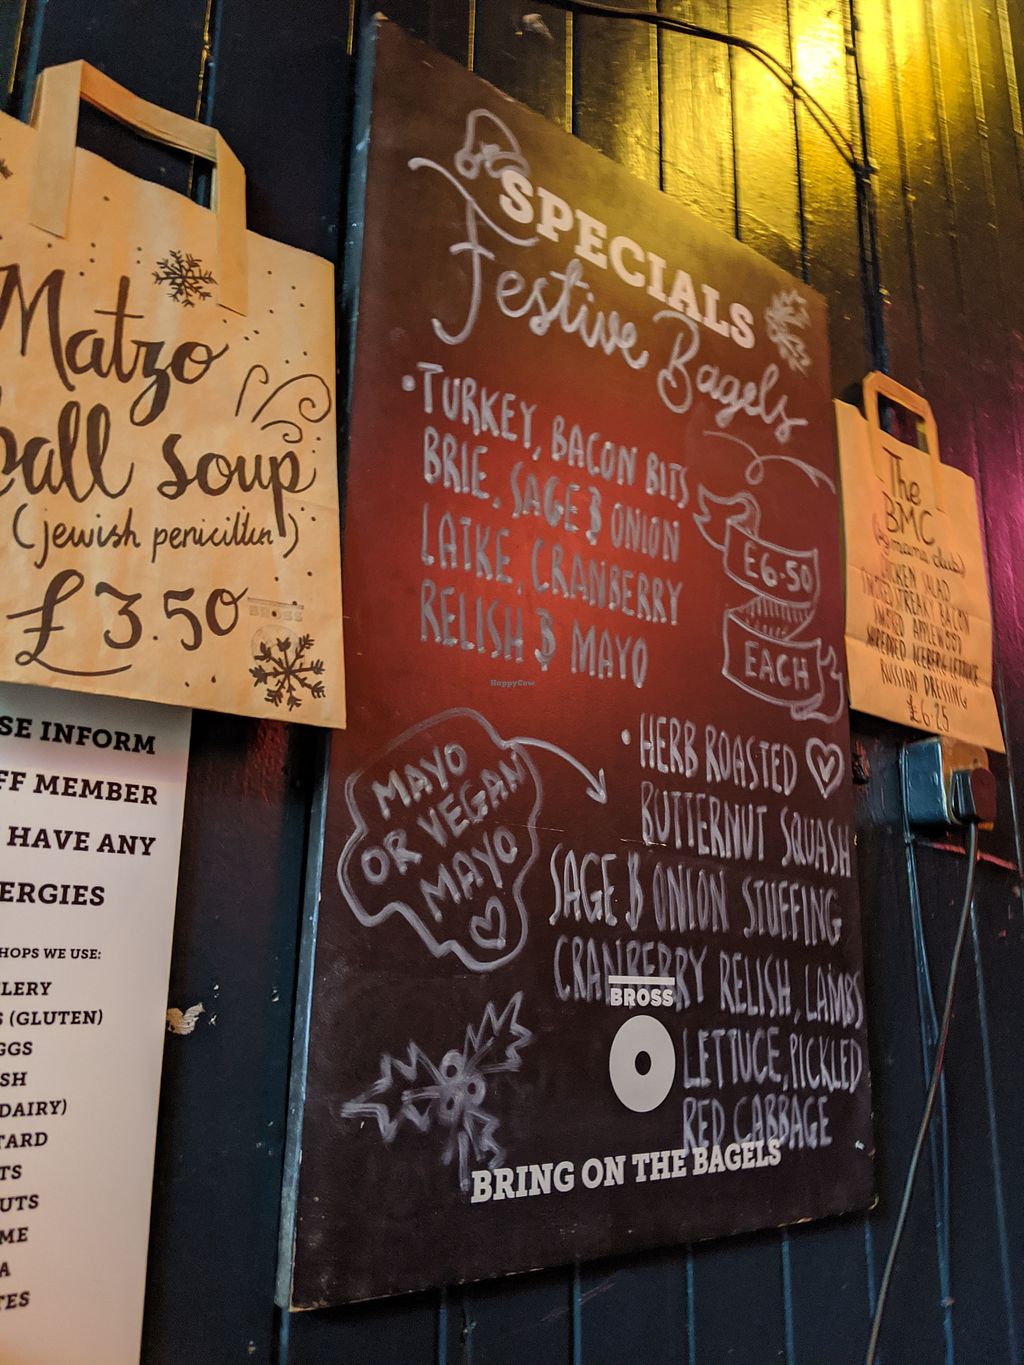 Matzo
ball soup
(jewish penicillin)
£3.50
BROSS
SE INFORM
FF MEMBER
HAVE ANY
ERGIES
HOPS WE USE:
LERY
S (GLUTEN)
GGS
SH
DAIRY)
TARD
TS
UTS
ME
A
TES
SPECIALS
Festive Bagels
•TURKEY, BACON BITS
BRIE, SAGE & ONION
LATKE, CRANBERRY
RELISH & MAYO
£6.50
EACH
HappyCow
MAYO
OR VEGAN
MAYO
•HERB ROASTED
BUTTERNUT SQUASH
SAGE & ONION STUFFING
CRANBERRY RELISH, LAMBS
LETTUCE, PICKLED
RED CABBAGE
BROSS
BRING ON THE BAGELS
The
BMC
SALAD
STREAKY BACON
SMOKED APPLEWOOD
SHREDDED ICEBERG LETTUCE
RUSSIAN DRESSING
£6.25